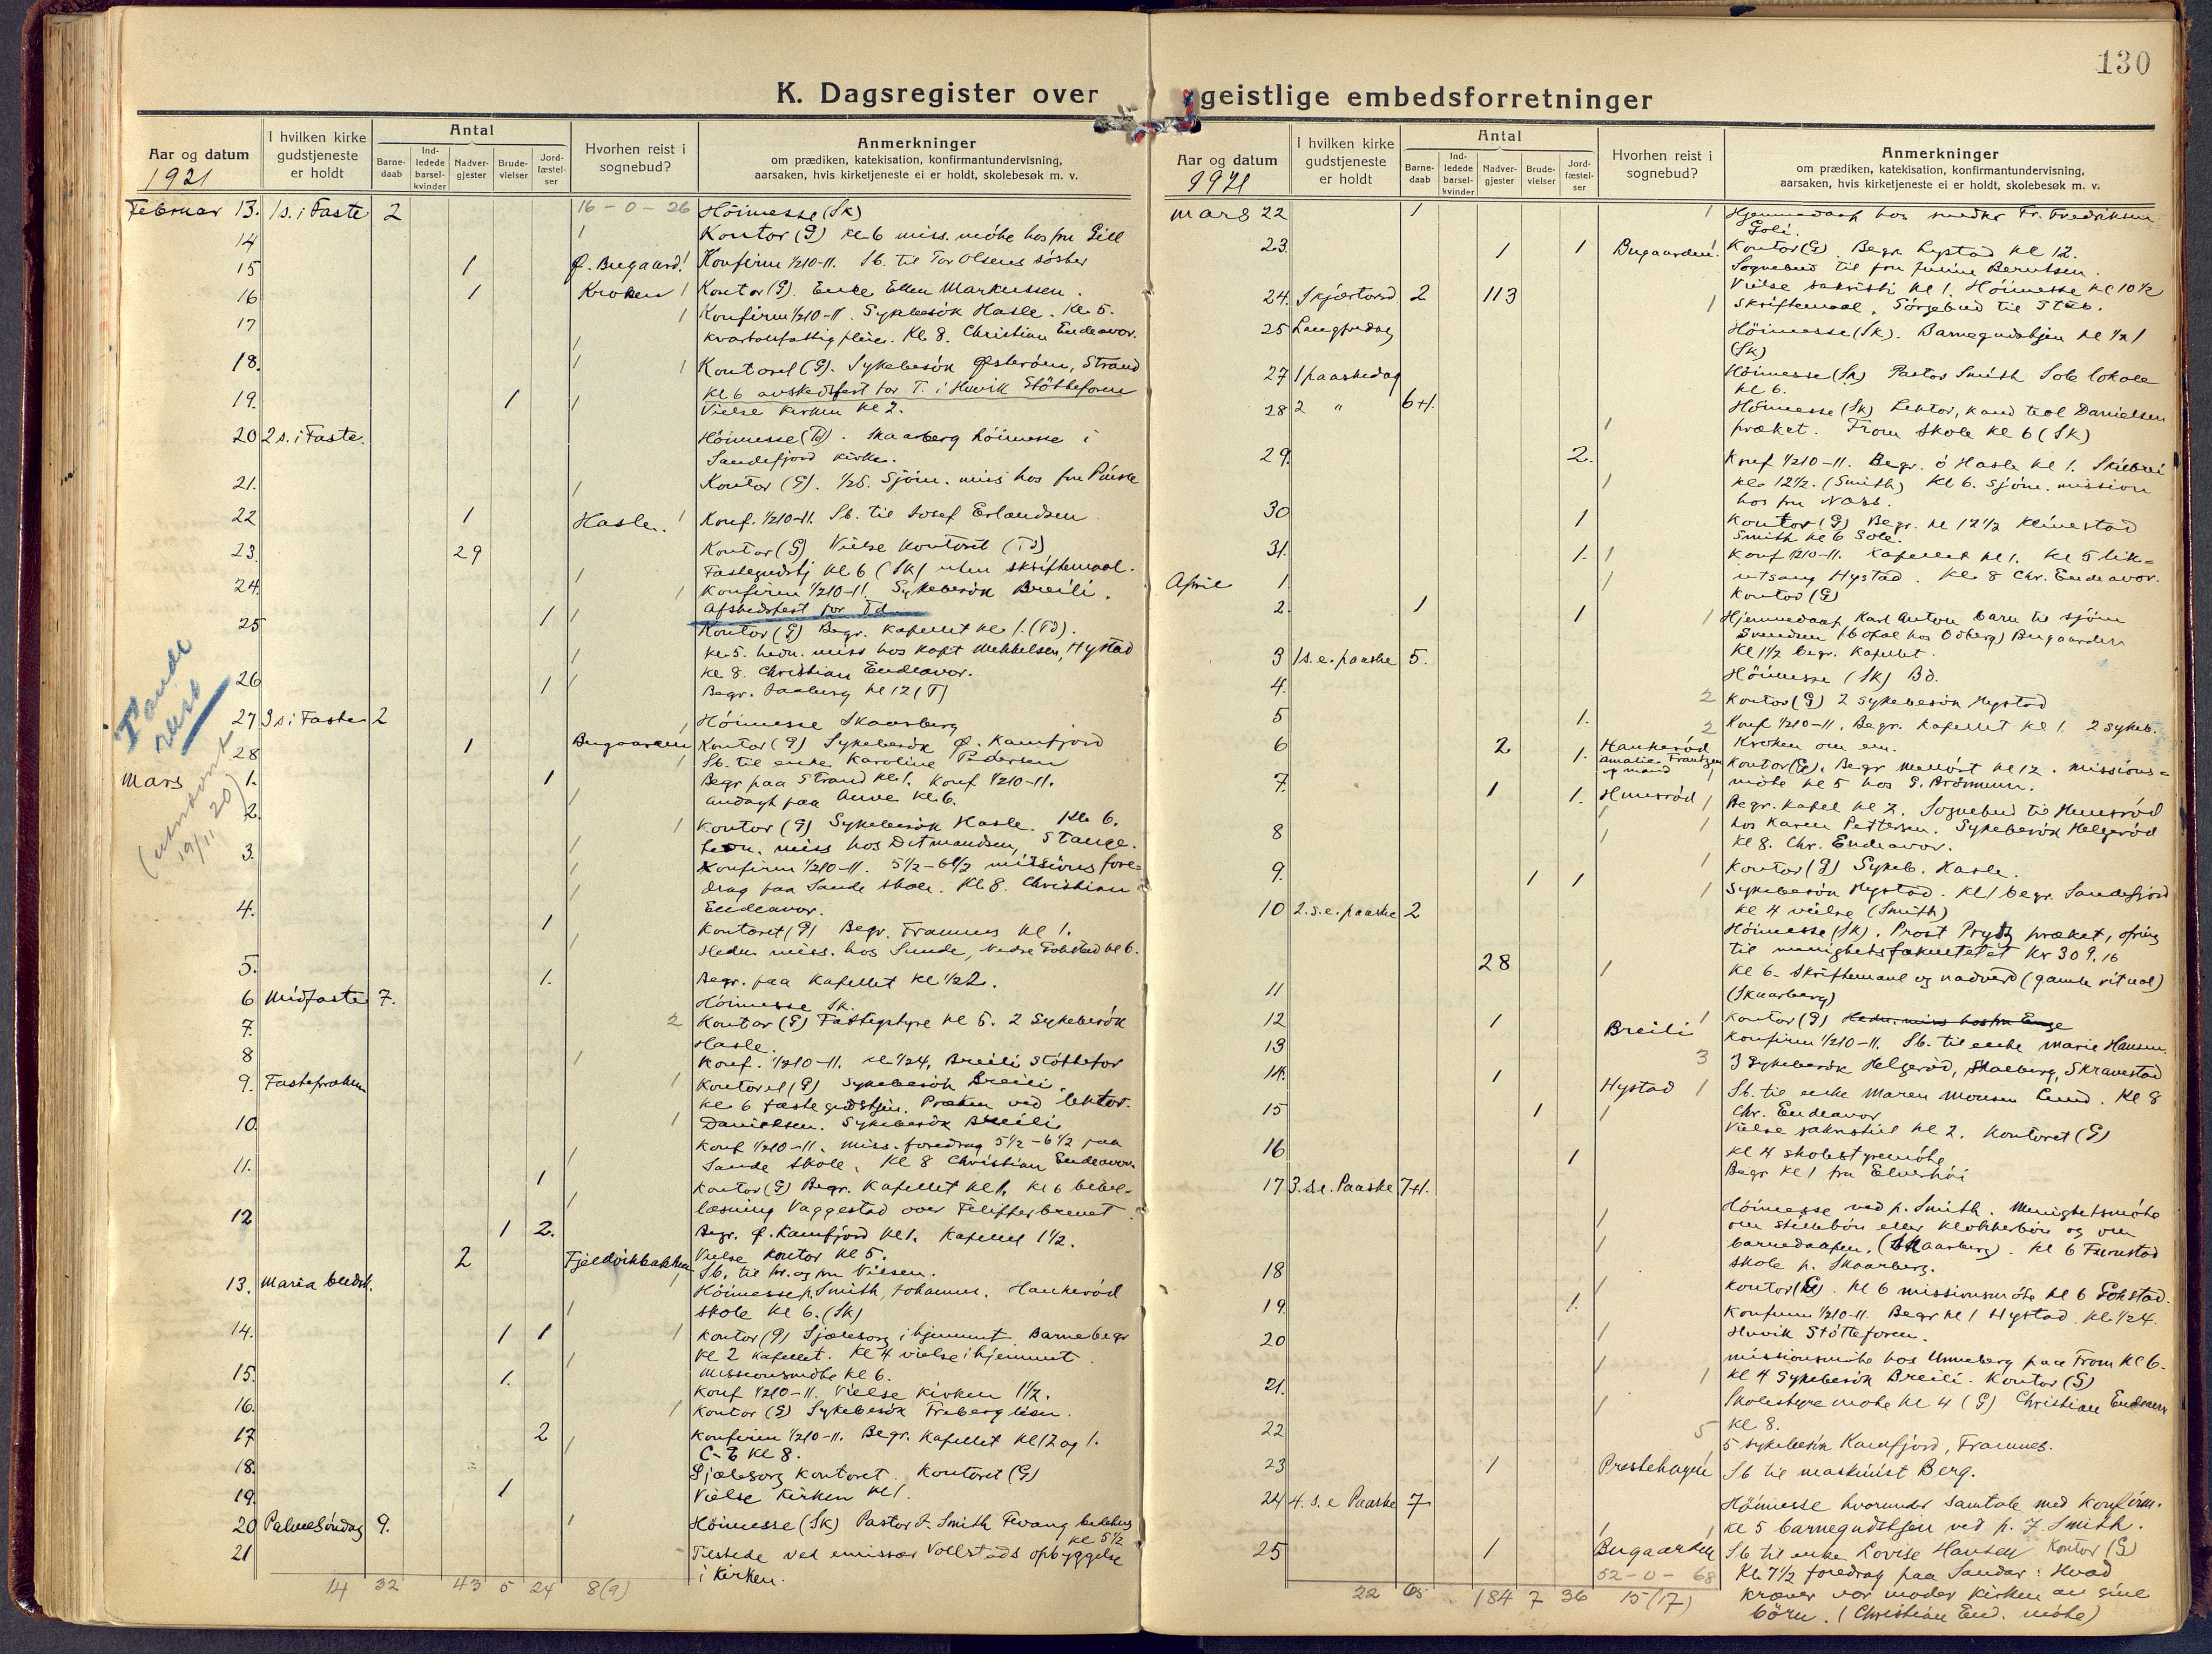 130
K. Dagsregister over geistlige embedsforretninger
Aar og datum
1921
I hvilken kirke gudstjeneste er holdt
Antal
Barne-daab
Ind-ledede barsel-kvinder
Nadver-gjester
Brude-vielser
Jord-fæstel-ser
Hvorhen reist i sognebud?
Anmerkninger
om prædiken, katekisation, konfirmantundervisning,
aarsaken, hvis kirketjeneste ei er holdt, skolebesøk m. v.
Februar 13. 1 s. i Faste 2 16-0-26 Höimesse (Sk)
14 1 Kontor (G) kl 6 miss. möte hos fru Gill
15 1 Ø. Bugaard! Konfirm 1/210-11. Sb. til Tor Olsens söster
16 1 Kroken 1 Kontor (G). Enke Ellen Markussen.
17 1 Konfirm 1/210-11. Sykebesök Hasle. Kl. 5.
Kl. 8. Christian Endeavor.
18. 1 Kontoret (G). Sykebesök Østeröen, Strand
kl 6 avskedsfest for T. i Huvik Stötteforen
19. 1 1 Vielse kirken kl 2.
20 2 s. i Faste. Höimesse (Td). Skaarberg höimesse i
Sandefjord kirke.
21. 1 Kontor (G). 1/25. Sjöm. miss hos fru
22 1 Hasle. 1 Konf. 1/210-11. Sb. til Josef Erlandsen
23. 29 Kontor (G) Vielse kontoret (Td)
Fastegudstj kl 6 (Sk) uten skriftemaal.
24. 1 Konfirm 1/210-11. Sykebesök Breili.
Afskedsfest for Td
25 1 1 Kontor (G) Begr. kapellet kl. 1. (Td).
kl. 5. hedn. miss hos kapt Mikkelsen, Hystad
kl 8. Christian Endeavor.
26 1 1 Begr. kl 12 (T)
Tande reist
(utnævnt 19/11 20)
27 3 s i Faste 2 1 Höimesse Skaarberg
28 1 Bugaarden Kontor (G) Sykebesök Ø. Kamfjord
1 Sb. til enke Karoline Pedersen
Mars 1. 1 Begr paa Strand kl 1. Konf 1/210-11.
andagt paa kl. 6.
2. 1 Kontor (G) Sykebesök Hasle. Kl. 6.
hedn. miss hos Ditmandsen, Stange.
3. 1 Konfirm 1/210-11. 5 1/2-6 1/2 missions fore-
drag paa Sande skole. Kl. 8. Christian
Endeavor.
4. 1 Kontoret (G) Begr. Framnes kl 1.
Hedn. miss. hos Sunde, Nedre Gokstad kl 6.
5. 1. Begr. paa Kapellet kl 1/22.
6 Midfaste 7. Höimesse Sk.
7. 2 Kontor (G) Fattigstyre kl 5. 2 Sykebesök
Hasle.
8 1 Konf. 1/210-11. kl 1/24, Breili Stöttefor
9. Fasteprœken 1 Kontoret (G) Sykebesök Breili.
kl 6 fastegudstjen. Præken ved lektor
10. 1 Danielsen. Sykebesök Breili
Konf 1/210-11. Miss. foredrag 5 1/2-6 1/2 paa
Sande skole. Kl 8 Christian Endeavor.
11. 1 Kontor (G) Begr. Kapellet kl 1. kl 6 bibel-
læsning Vaggestad over Filipperbrevet
12 1 2. Begr. Ø. Kamfjord kl 1. Kapellet 1 1/2.
Vielse kontor kl 5.
2 Fjeldvikbakken Sb. til hr. og fru Nilsen.
13. Maria budsk. Höimesse p. Smith, Johannes. Haukeröd
skole kl 6. (Sk)
14. 1 1 1 Kontor (G) Sjælesorg i hjemmet Barnebegr
kl 2 kapellet. Kl 4 vielse i hjemmet.
Missionsmöte kl 6.
15. 1. Konf 1/210-11. Vielse kirken 1 1/2.
16. 1 Kontor (G) Sykebesök Friberg lien.
17 2 Konfirm 1/210-11. Begr. kapellet kl 12 og 1.
C-E kl 8.
18. Sjælesorg kontoret. Kontoret (G)
19. 1 Vielse kirken kl 1.
20 Palmesöndag 9. 1 Höimesse (Sk) Pastor J. Smith Fevang bedehus
kl 5 1/2
21 Tilstede ved emissær Vollstads opbyggelse
i kirken.
14 32 43 5 24 8(9)
Aar og datum
1921
I hvilken kirke gudstjeneste er holdt
Antal
Barne-daab
Ind-ledede barsel-kvinder
Nadver-gjester
Brude-vielser
Jord-fæstel-ser
Hvorhen reist i sognebud?
Anmerkninger
om prædiken, katekisation, konfirmantundervisning,
aarsaken, hvis kirketjeneste ei er holdt, skolebesøk m. v.
Mars 22 1 1 Hjemmedaap hos snedker Fr. Fredriksen
Goli.
23. 1 1 Bugaarden! Kontor (G). Begr. Lystad kl 12.
Sognebud til fru Berntsen.
24. Skjærtorsd 2 113 Vielse sakristi kl 1. Höimesse kl 10 1/2
1 Skriftemaal. Sörgebud til Stub.
25 Langfredag Höimesse (Sk). Barnegudstjen kl 1/21
(Sk)
27 1 paaskedag Höimesse (Sk) Pastor Smith Sole lokale
kl 6.
28 2 " 6+1. Höimesse (Sk) Lektor, kand teol Danielsen
præket. From skole kl 6 (Sk)
29. 2. Konf 1/210-11. Begr. ö Hasle kl 1. Skibrei
kl. 12 1/2. (Smith) kl 6. Sjöm. mission
hos fru Nass.
30 1 Kontor (G) Begr. kl 12 1/2 Klinestad
Smith kl 6 Sole.
31. 1. 1 Konf 1/210-11. Kapellet kl 1. Kl 5 lik-
utsang Hystad. Kl. 8 Chr. Endeavor.
April 1. Kontor (G)
2. 1 1 1 Hjemmedaap Karl Anton barn til sjöm
Svendsen Bugaarden
Kl 1 1/2 begr. Kapellet.
3 1 s. e. paaske 5. Höimesse (Sk) Bd.
4. 2 Kontor (G) 2 Sykebesök Hystad
5 1. 2 Konf 1/210-11. Begr. Kapellet kl 1. 2 sykeb.
6 2 1. Haukeröd Kroken om em.
Amalie Frantzen
og mand Kontor (G). Begr kl 12. Missions-
möte kl 5 hos G. Brömmun.
7. 1 1. Hunsröd 1 Begr. Kapel kl 2. Sognebud til Hunsröd
hos Karen Pettersen. Sykebesök Helgeröd
kl 8. Chr. Endeavor.
8 1 Kontor (G) Sykeb. Hasle.
9. 1 1 1 Sykebesök Hystad. Kl 1 begr. Sandefjord
kl 4 vielse (Smith)
10 2. s. e. paaske 2 Höimesse (Sk). Prost Prytz præket, ofring
til menighetsfakultetet Kr 309,16
28 1 kl 6 Skriftemaal og nadverd (gamle ritual)
(Skaarberg)
11 Kontor (G) Hedn. miss hos fru Enge
12 1 Breili 1 Konfirm 1/210-11. Sb. til enke Marie Hansen.
13 3 3 Sykebesök Helgeröd, Skolberg, Skravestad
14. 1 Hystad 1 Sb. til enke Maren Monsen Lund. Kl 8
Chr. Endeavor
15 1 1 Vielse sakristiet kl 2. Kontoret (G)
kl 4 skolestyremöte
16 1 Begr kl 1 fra Elverhöi
17 3. s. e. Paaske 7+1. Höimesse ved p. Smith. Menighetsmöte
om stillebön eller klokkerbön og om
barnedaapen. (Skaarberg). Kl 6 Furustad
skole p. Skaarberg.
18 1 Kontor (G). Kl 6 missionsmöte kl 6 Gokstad.
19. 1. Konfirm 1/210-11. Begr kl 1 Hystad. Kl. 1/24.
Huvik Stötteforen.
20 missionsmöte hos Unneberg paa From kl 6.
1 Kl 4 Sykebesök Breili. Kontor (G)
21. Skolestyre möte kl 4 (G) Christian Endeavor
kl 8.
22 5 5 sykebesök Kamfjord, Framnes.
23 1 Prestehagen Sb til maskinist Berg.
24 4. s. e Paaske 7 Höimesse hvorunder samtale med Konfirm.
kl 5 barnegudstjen ved p. J. Smith.
25 1 Bugaarden Sb til enke Lovise Hansen Kontor (G)
52-0-68 Kl. 7 1/2 foredrag paa Sandar: Hvad
22 65 184 7 36 15(17) kræver vor moder kirken av sine
börn. (Christian End. möte)